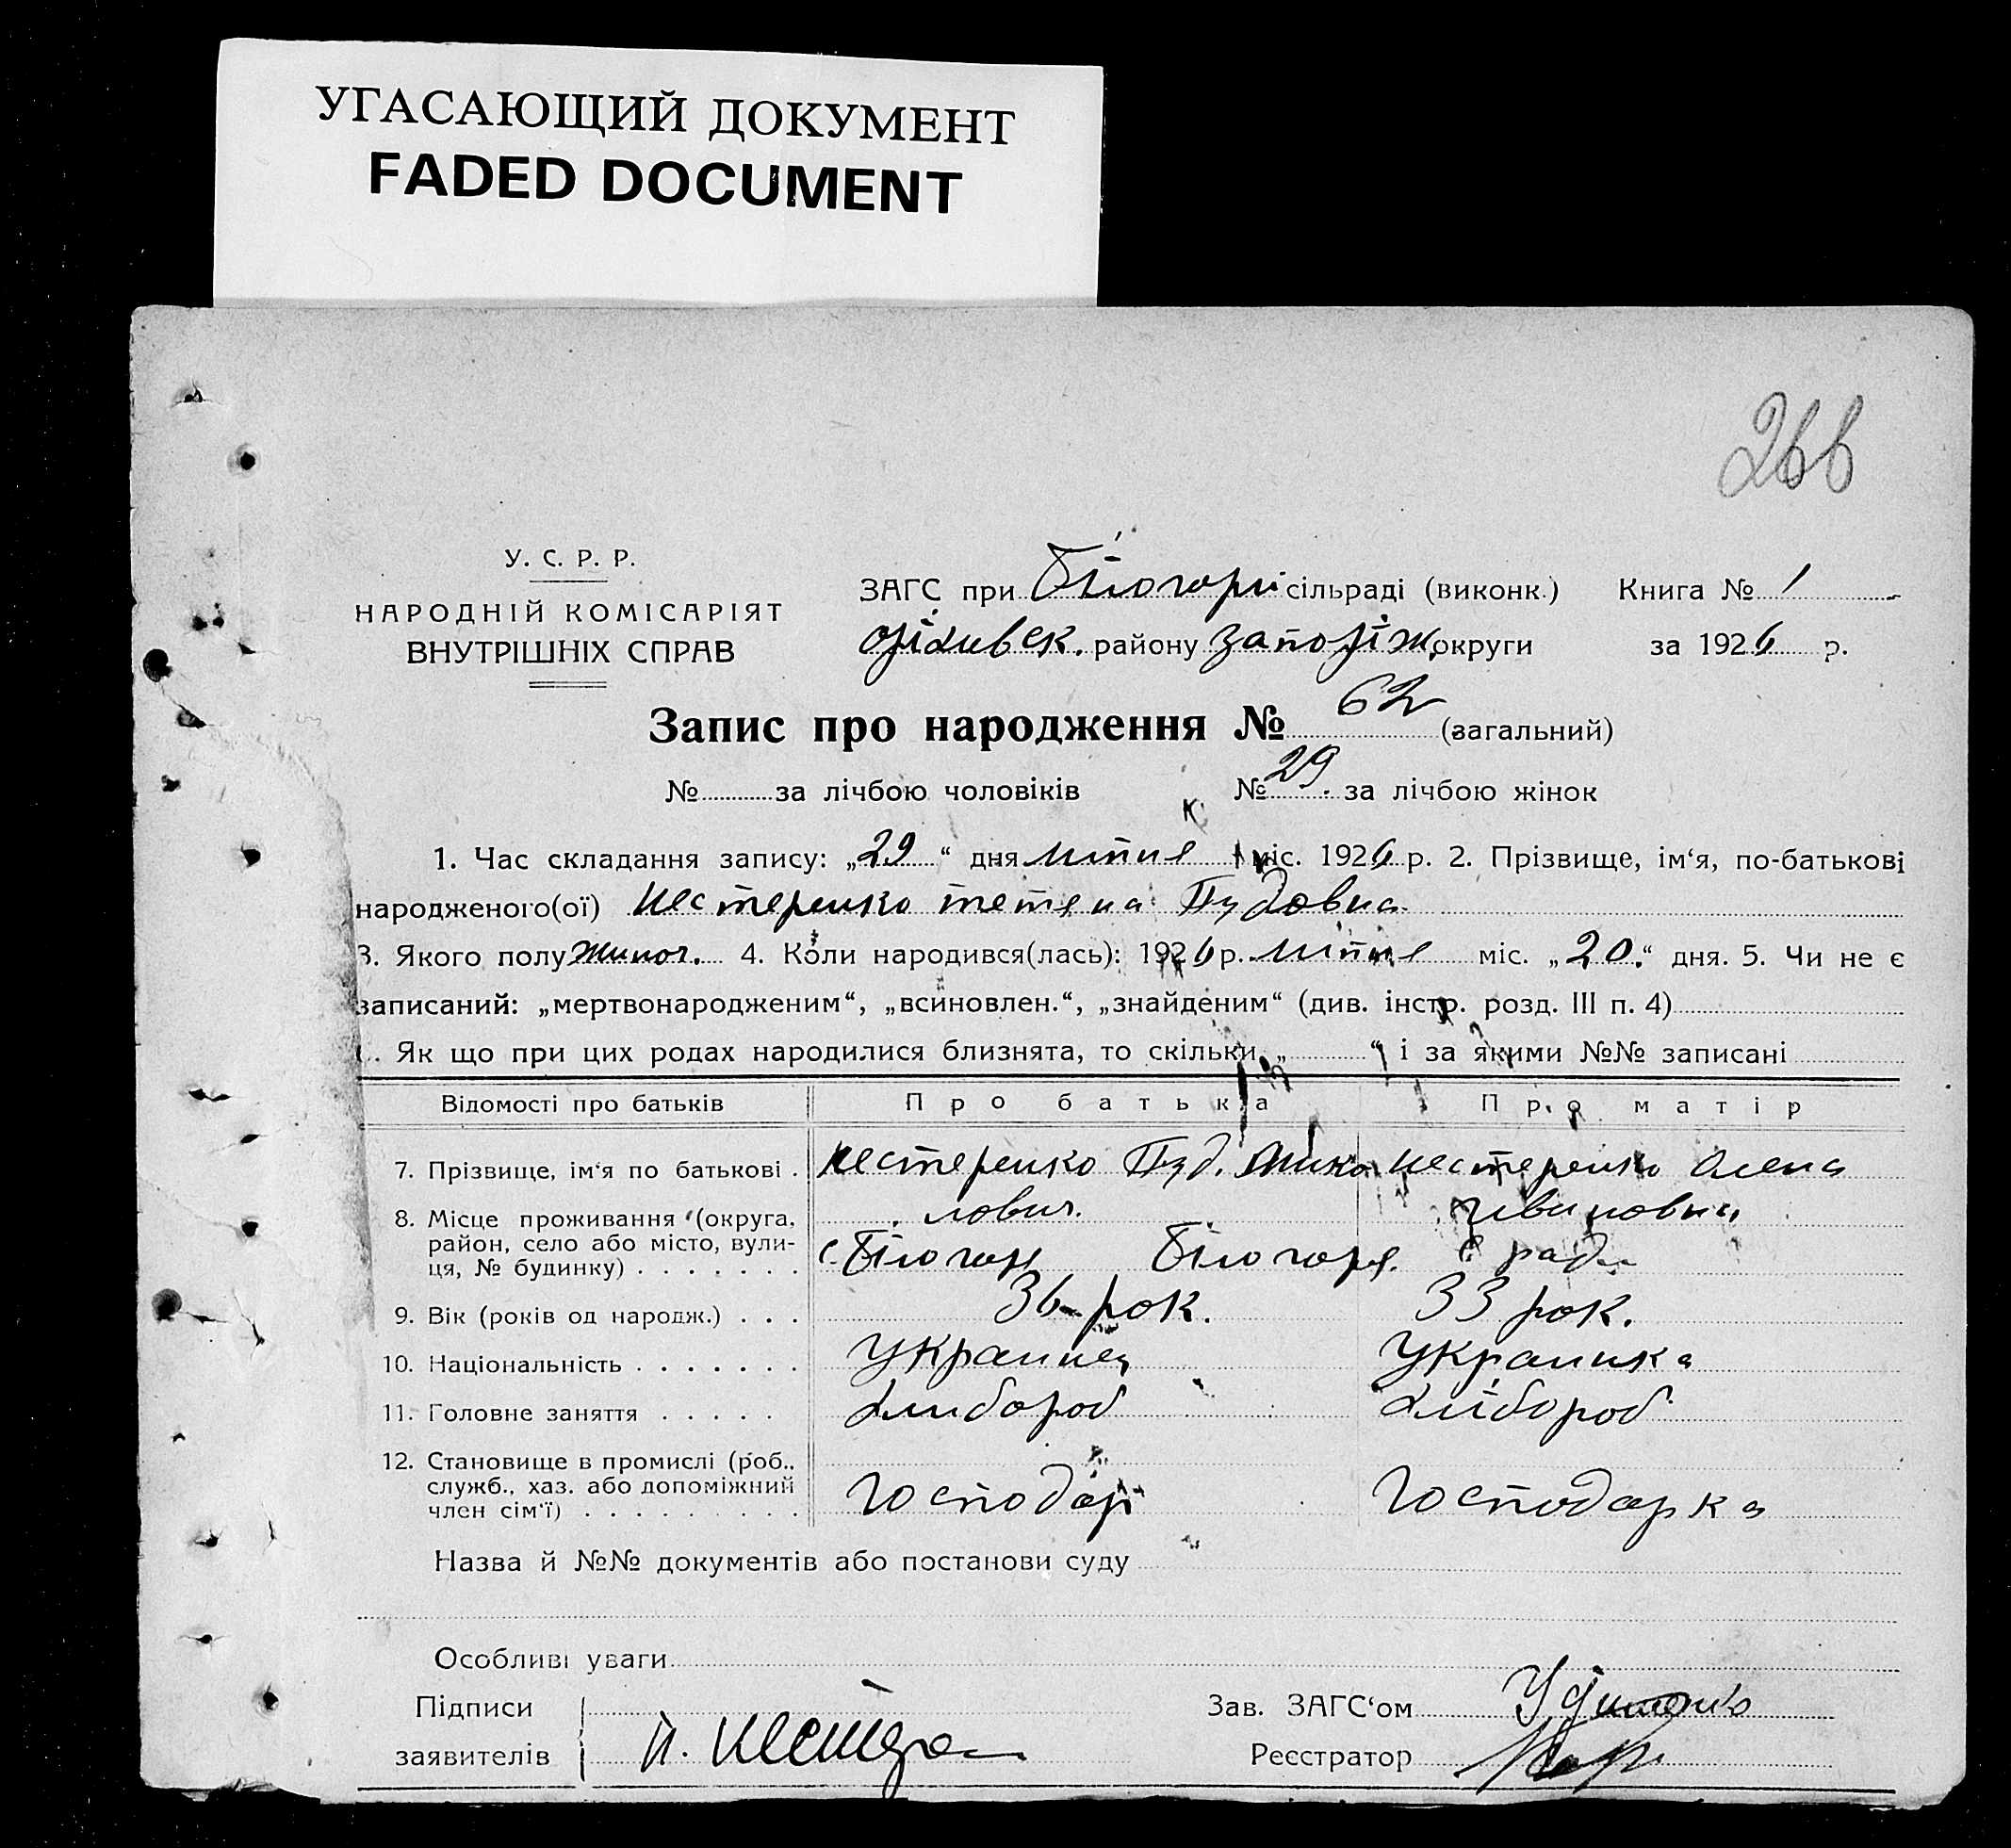 УГАСАЮЩИЙ ДОКУМЕНТ
FADED DOCUMENT
266
У. С. Р. Р.
НАРОДНІЙ КОМІСАРІЯТ
ВНУТРІШНІХ СПРАВ
ЗАГС при Білогорі сільраді (виконк.) Книга № 1
Оріхивск. району Запоріж. округи за 1926 р.
Запис про народження № 62 (загальний)
№ за лічбою чоловіків № 29. за лічбою жінок
1. Час складання запису: „29“ дня липня міс. 1926 р. 2. Прізвище, ім‘я, по-батькові
народженого(ої) Нестеренко Тетяна Пудовна
3. Якого полу жиноч. 4. Коли народився(лась): 1926 р. липня міс. „20.“ дня. 5. Чи не є
записаний: „мертвонародженим“, „всиновлен.“, „знайденим“ (див. інстр. розд. III п. 4)
. Як що при цих родах народилися близнята, то скільки „ “ і за якими №№ записані
Відомості про батьків Про батька Про матір
7. Прізвище, ім‘я по батькові . Нестеренко Пуд. Мика Нестеренко Олена
лович.
8. Місце проживання (округа,
район, село або місто, вули-
ця, № будинку) . . . . . . . с. Білогоря Білогоря. с рада
9. Вік (років од народж.) . . . 36 рок. 33 рок.
10. Національність . . . . . . . Украинец Украинка
11. Головне заняття . . . . . Хлибороб Хлібороб
12. Становище в промислі (роб.,
служб., хаз. або допоміжний
член сім‘ї) . . . . . . . . . Господар Господарка
Назва й №№ документів або постанови суду
Особливі уваги
Підписи
заявителів П.
Зав. ЗАГС‘ом
Реєстратор